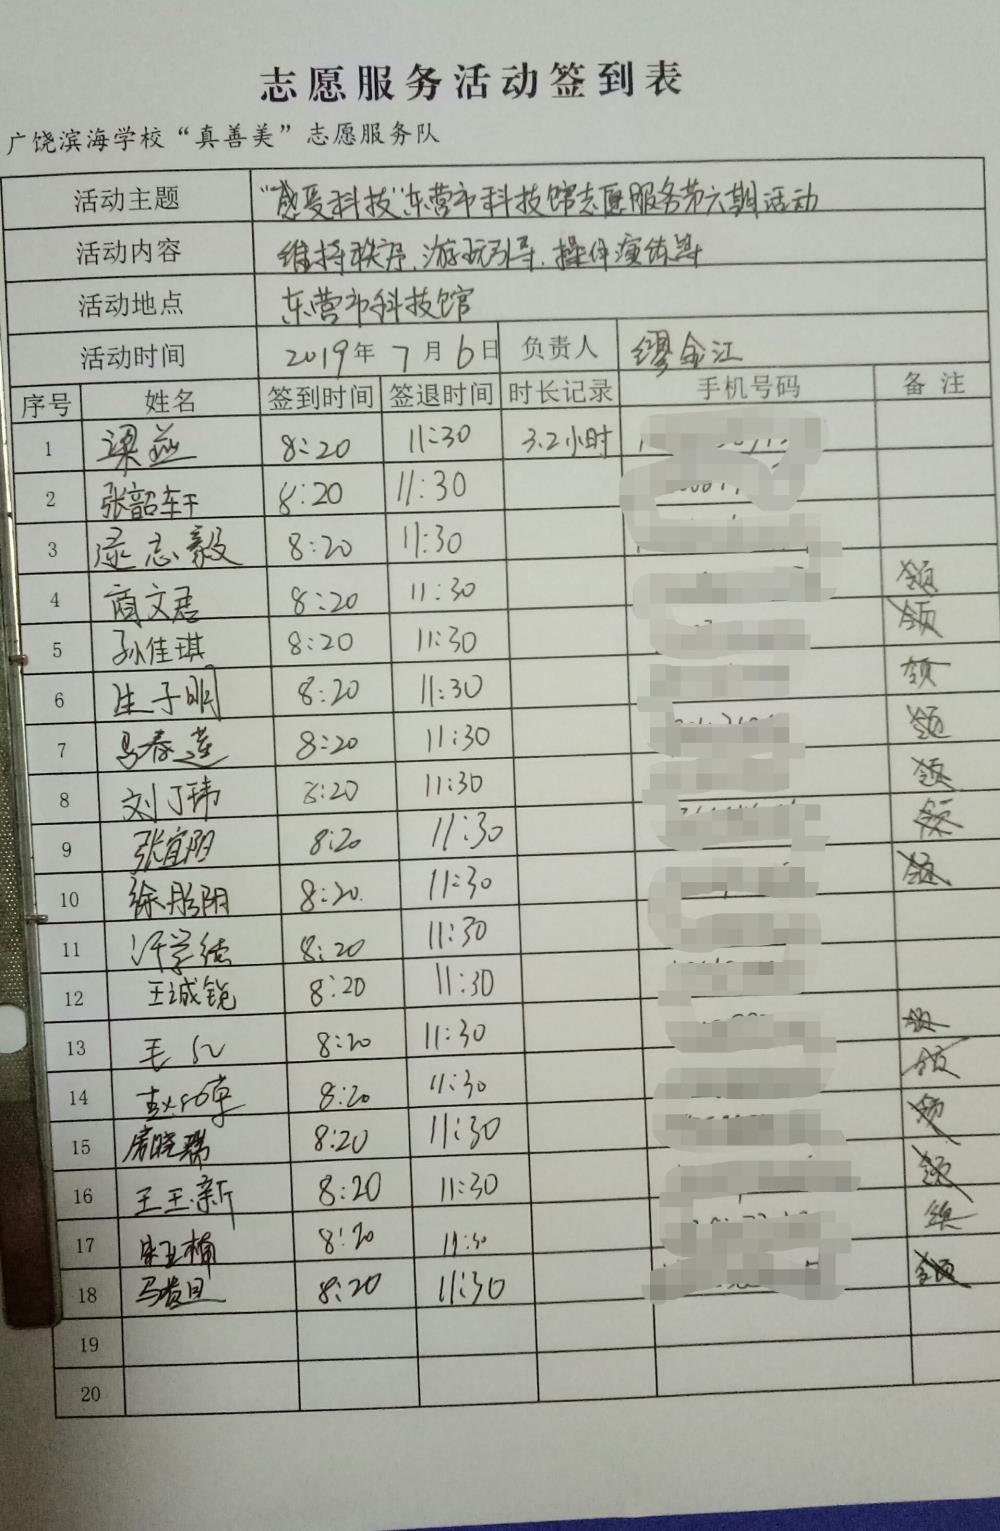 志愿服务活动签到表
广饶滨海学校“真善美”志愿服务队
活动主题 “感受科技”东营市科技馆志愿服务第六期活动
活动内容 维持秩序、游玩引导、操作演练等
活动地点 东营市科技馆
活动时间 2019年7月6日 负责人 缪金江
序号 姓名 签到时间 签退时间 时长记录 手机号码 备注
1 梁燕 8:20 11:30 3.2小时
2 张韶轩 8:20 11:30
3 逯志毅 8:20 11:30
4 商文君 8:20 11:30 领
5 孙佳琪 8:20 11:30 领
6 生子明 8:20 11:30 领
7 吕春莲 8:20 11:30 领
8 刘丁玮 8:20 11:30 领
9 张宜阳 8:20 11:30 领
10 徐彤阴 8:20 11:30 领
11 8:20 11:30
12 王诚锐 8:20 11:30
13 毛 8:20 11:30 领
14 8:20 11:30 领
15 房晓瑞 8:20 11:30 领
16 王玉新 8:20 11:30 领
17 8:20 11:30 领
18 马贵旦 8:20 11:30 领
19
20